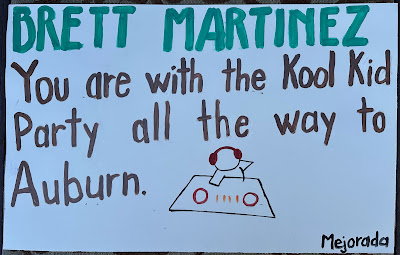 BRETT MARTINEZ
You are with the Kool Kid
Party all the way to
Auburn.
Mejorada